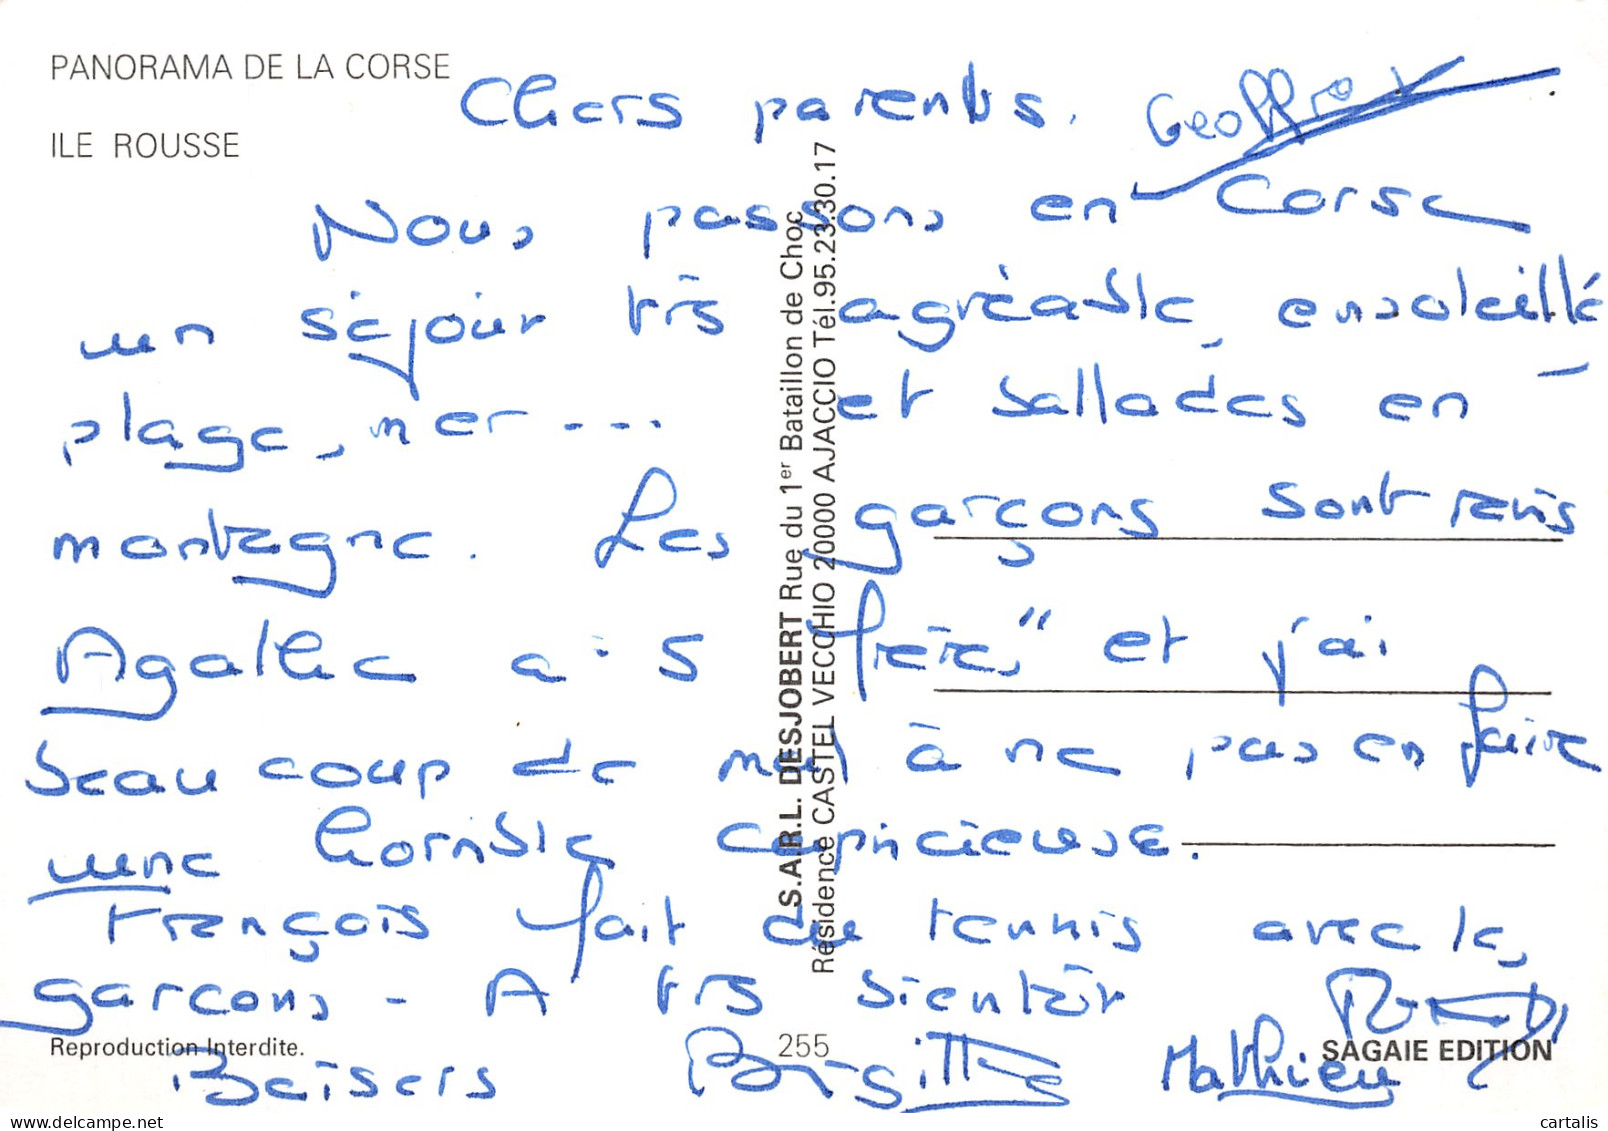 PANORAMA DE LA CORSE
ILE ROUSSE
Chers parents,
Geoffroy
Nous passons en Corse
un séjour très agréable, ensoleillé
plage, mer --- et ballades en -
montagne. Les garçons sont ravis
Agathe a 5 "frères" et j'ai
beaucoup de mal à ne pas en faire
une horrible capricieuse.
François fait du tennis avec les
garcons - A très bientôt
Baisers Brigitte Mathieu
S.A.R.L. DESJOBERT Rue du 1er Bataillon de Choc
Résidence CASTEL VECCHIO 20000 AJACCIO Tél.95.23.30.17
Reproduction Interdite.
255
SAGAIE EDITION
delcampe.net
cartalis